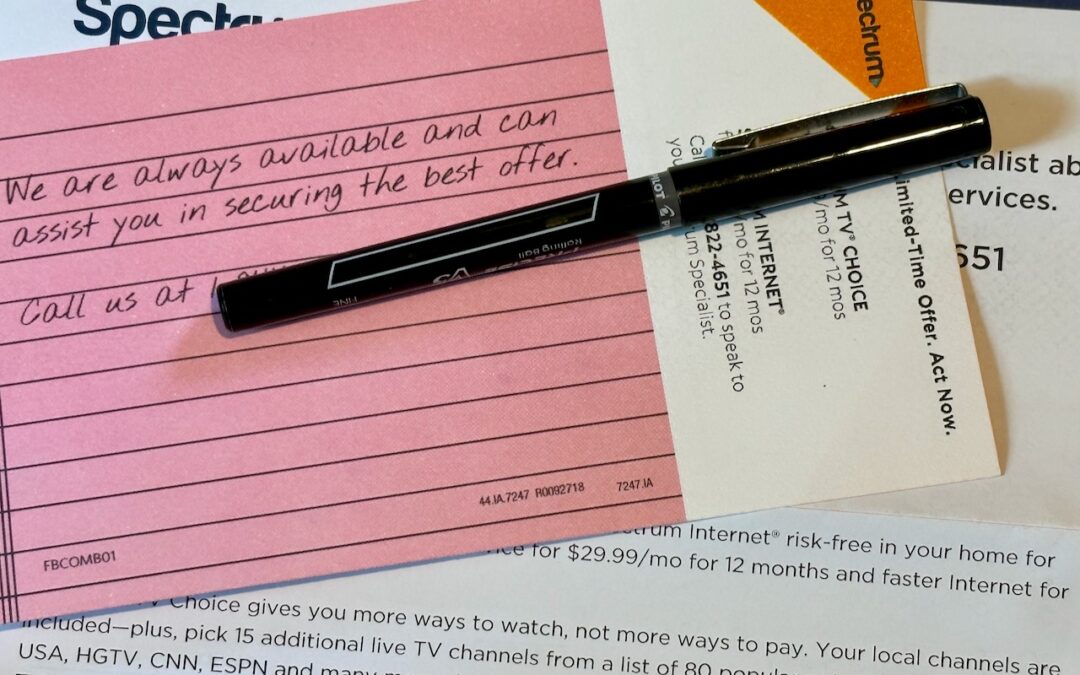 Spectrum
We are always available and can
assist you in securing the best offer.
Call us at
44.IA.7247 R0092718 7247.IA
FBCOMB01
PILOT
Rolling Ball
V5
FINE
Spectrum
Limited-Time Offer. Act Now.
TV® CHOICE
/mo for 12 mos
INTERNET®
/mo for 12 mos
822-4651 to speak to
Specialist.
ervices.
651
Internet® risk-free in your home for
for $29.99/mo for 12 months and faster Internet for
Choice gives you more ways to watch, not more ways to pay. Your local channels are
included—plus, pick 15 additional live TV channels from a list of 80
USA, HGTV, CNN, ESPN and many